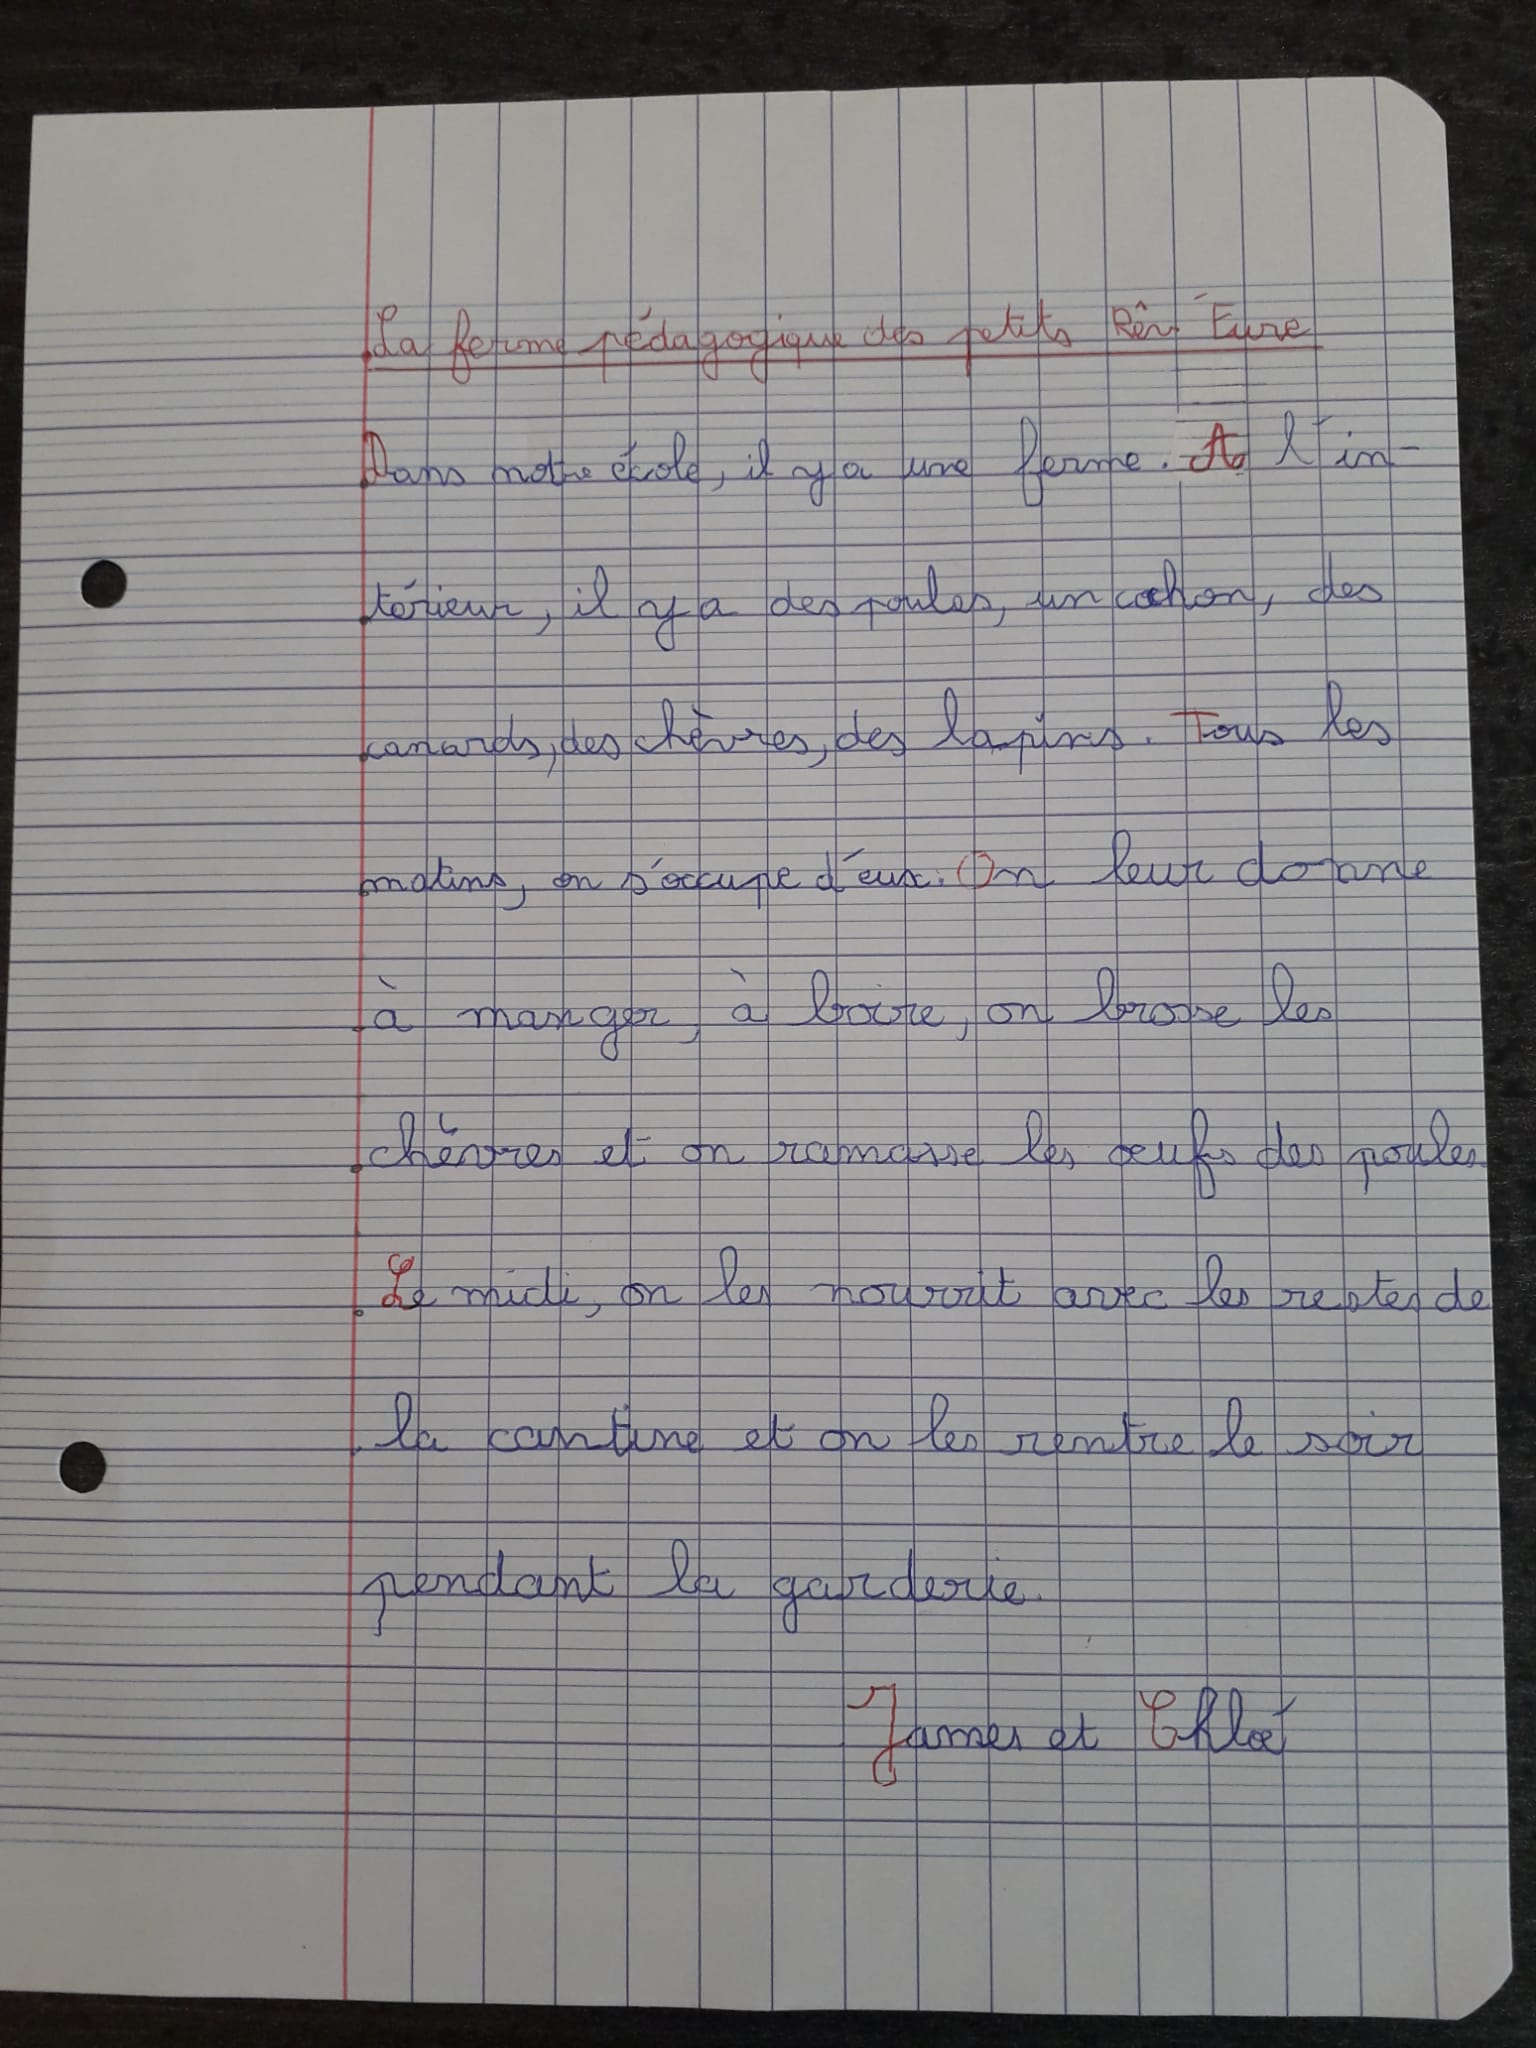 La ferme pédagogique des petits Rêv'Eure
Dans notre école, il y a une ferme. A l'in-
térieur, il y a des poules, un cochon, des
canards, des chèvres, des lapins. Tous les
matins, on s'occupe d'eux. On leur donne
à manger, à boire, on brosse les
chèvres et on ramasse les oeufs des poules.
Le midi, on les nourrit avec les restes de
la cantine et on les rentre le soir
pendant la garderie.
James et Chloé